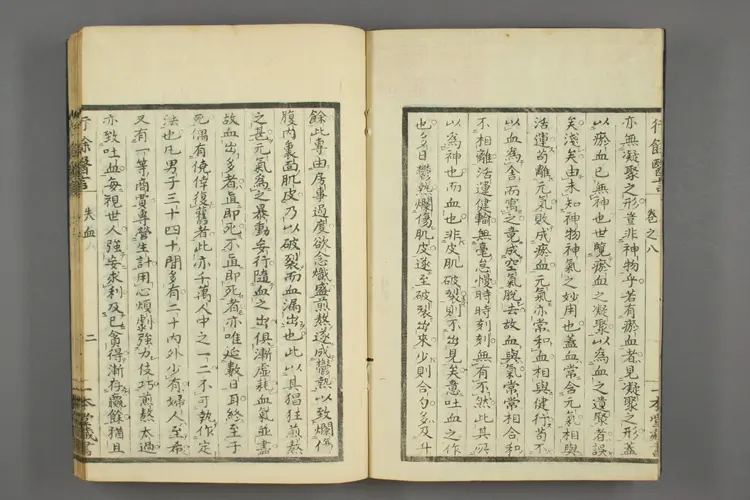 行餘醫言 卷之八 一本堂藏書
亦無凝聚之形豈非神物乎若有瘀血者見凝聚之形蓋
以瘀血已無神也世覽瘀血之凝聚以為血之遺聚者誤
矣淺矣由未知神物神氣之妙用也蓋血常含元氣相與
活運苟離元氣敗成瘀血元氣亦常和血相與健行苟不
以血為舍而寓之竟成空氣脫去故血與氣常常相合和
不相離活運健輸無毫怠慢時時刻刻無有不然此其所
以為神也而血也非皮肌破裂則不出見矣意吐血之作
也多日鬱熱爛傷肌皮遂至破裂出來少則合勺多及斗
餘此專由居事過度欲念熾盛煎熬遂成鬱熱以致爛傷
腹内裏面肌皮乃以破裂而血漏出也此以其猖狂煎熬
之甚元氣為之暴動妄行隨血之出俱漸虛耗血氣並盡
故血出多者直即死不直即死者亦唯延數日耳終至于
死偶有僥倖復舊者此亦千萬人中之一二不可執作定
法也凡男子三十四十間多有二十内外少有婦人至希
又有一等商賈專營生計用心煩劇強力使巧煎熬太過
亦致吐血每視世人強妄求利及已貪得漸存贏餘猶且
行餘醫言 失血 二 一本堂藏書